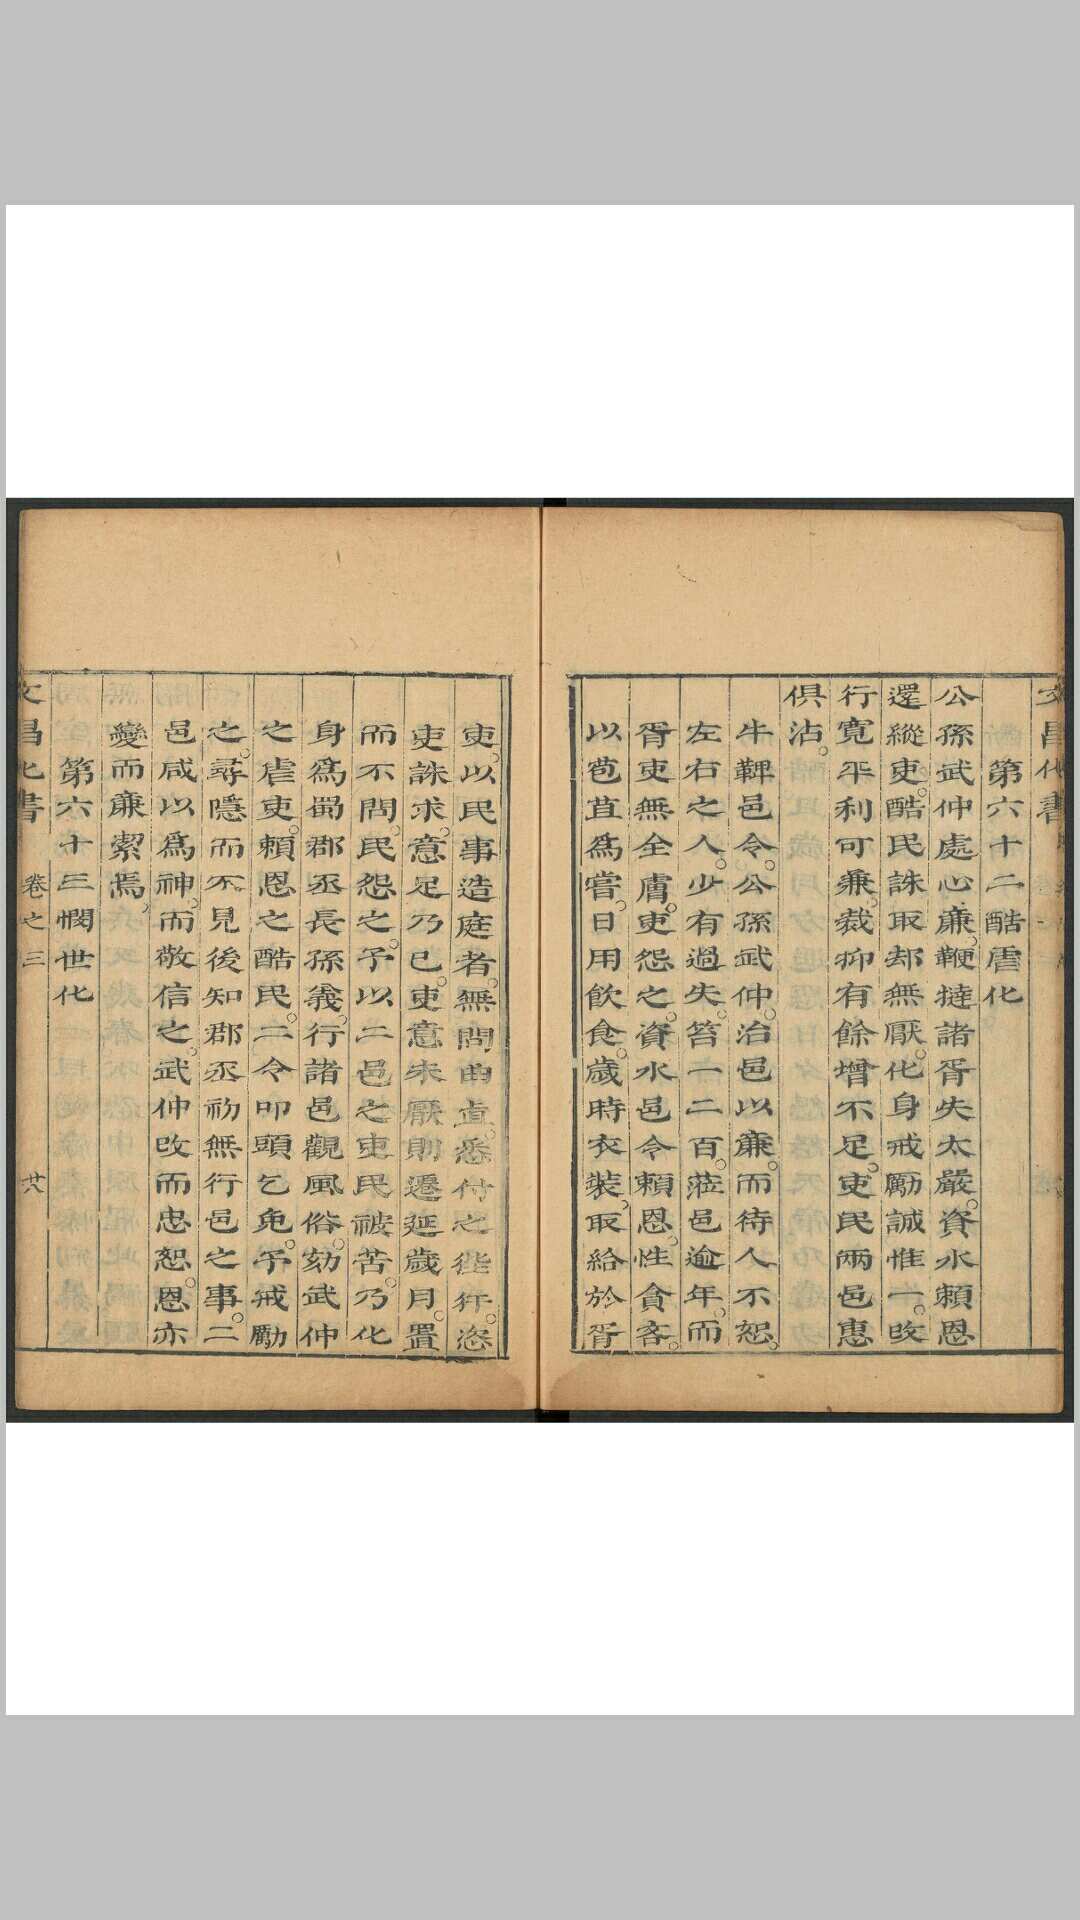 文昌化書
第六十二酷虐化
公孫武仲處心廉鞭撻諸胥失太嚴資水賴恩
還縱吏酷民誅取却無厭化身戒勵誠惟一改
行寬平利可兼裁抑有餘增不足吏民兩邑惠
俱沾
牛鞞邑令公孫武仲治邑以廉而待人不恕
左右之人少有過失笞一二百蒞邑逾年而
胥吏無全膚吏怨之資水邑令賴恩性貪吝
以苞苴為嘗日用飲食歲時衣裝取給於胥
吏以民事造庭者無問曲直悉付之徃犴恣
吏誅求意足乃已吏意未厭則遷延歲月置
而不問民怨之予以二邑之吏民被苦乃化
身為蜀郡丞長孫義行諸邑觀風俗劾武仲
之虐吏賴恩之酷民二令叩頭乞免予戒勵
之尋隱而不見後知郡丞初無行邑之事二
邑咸以為神而敬信之武仲改而忠恕恩亦
變而廉潔焉
第六十三憫世化
文昌化書 卷之三 廿八